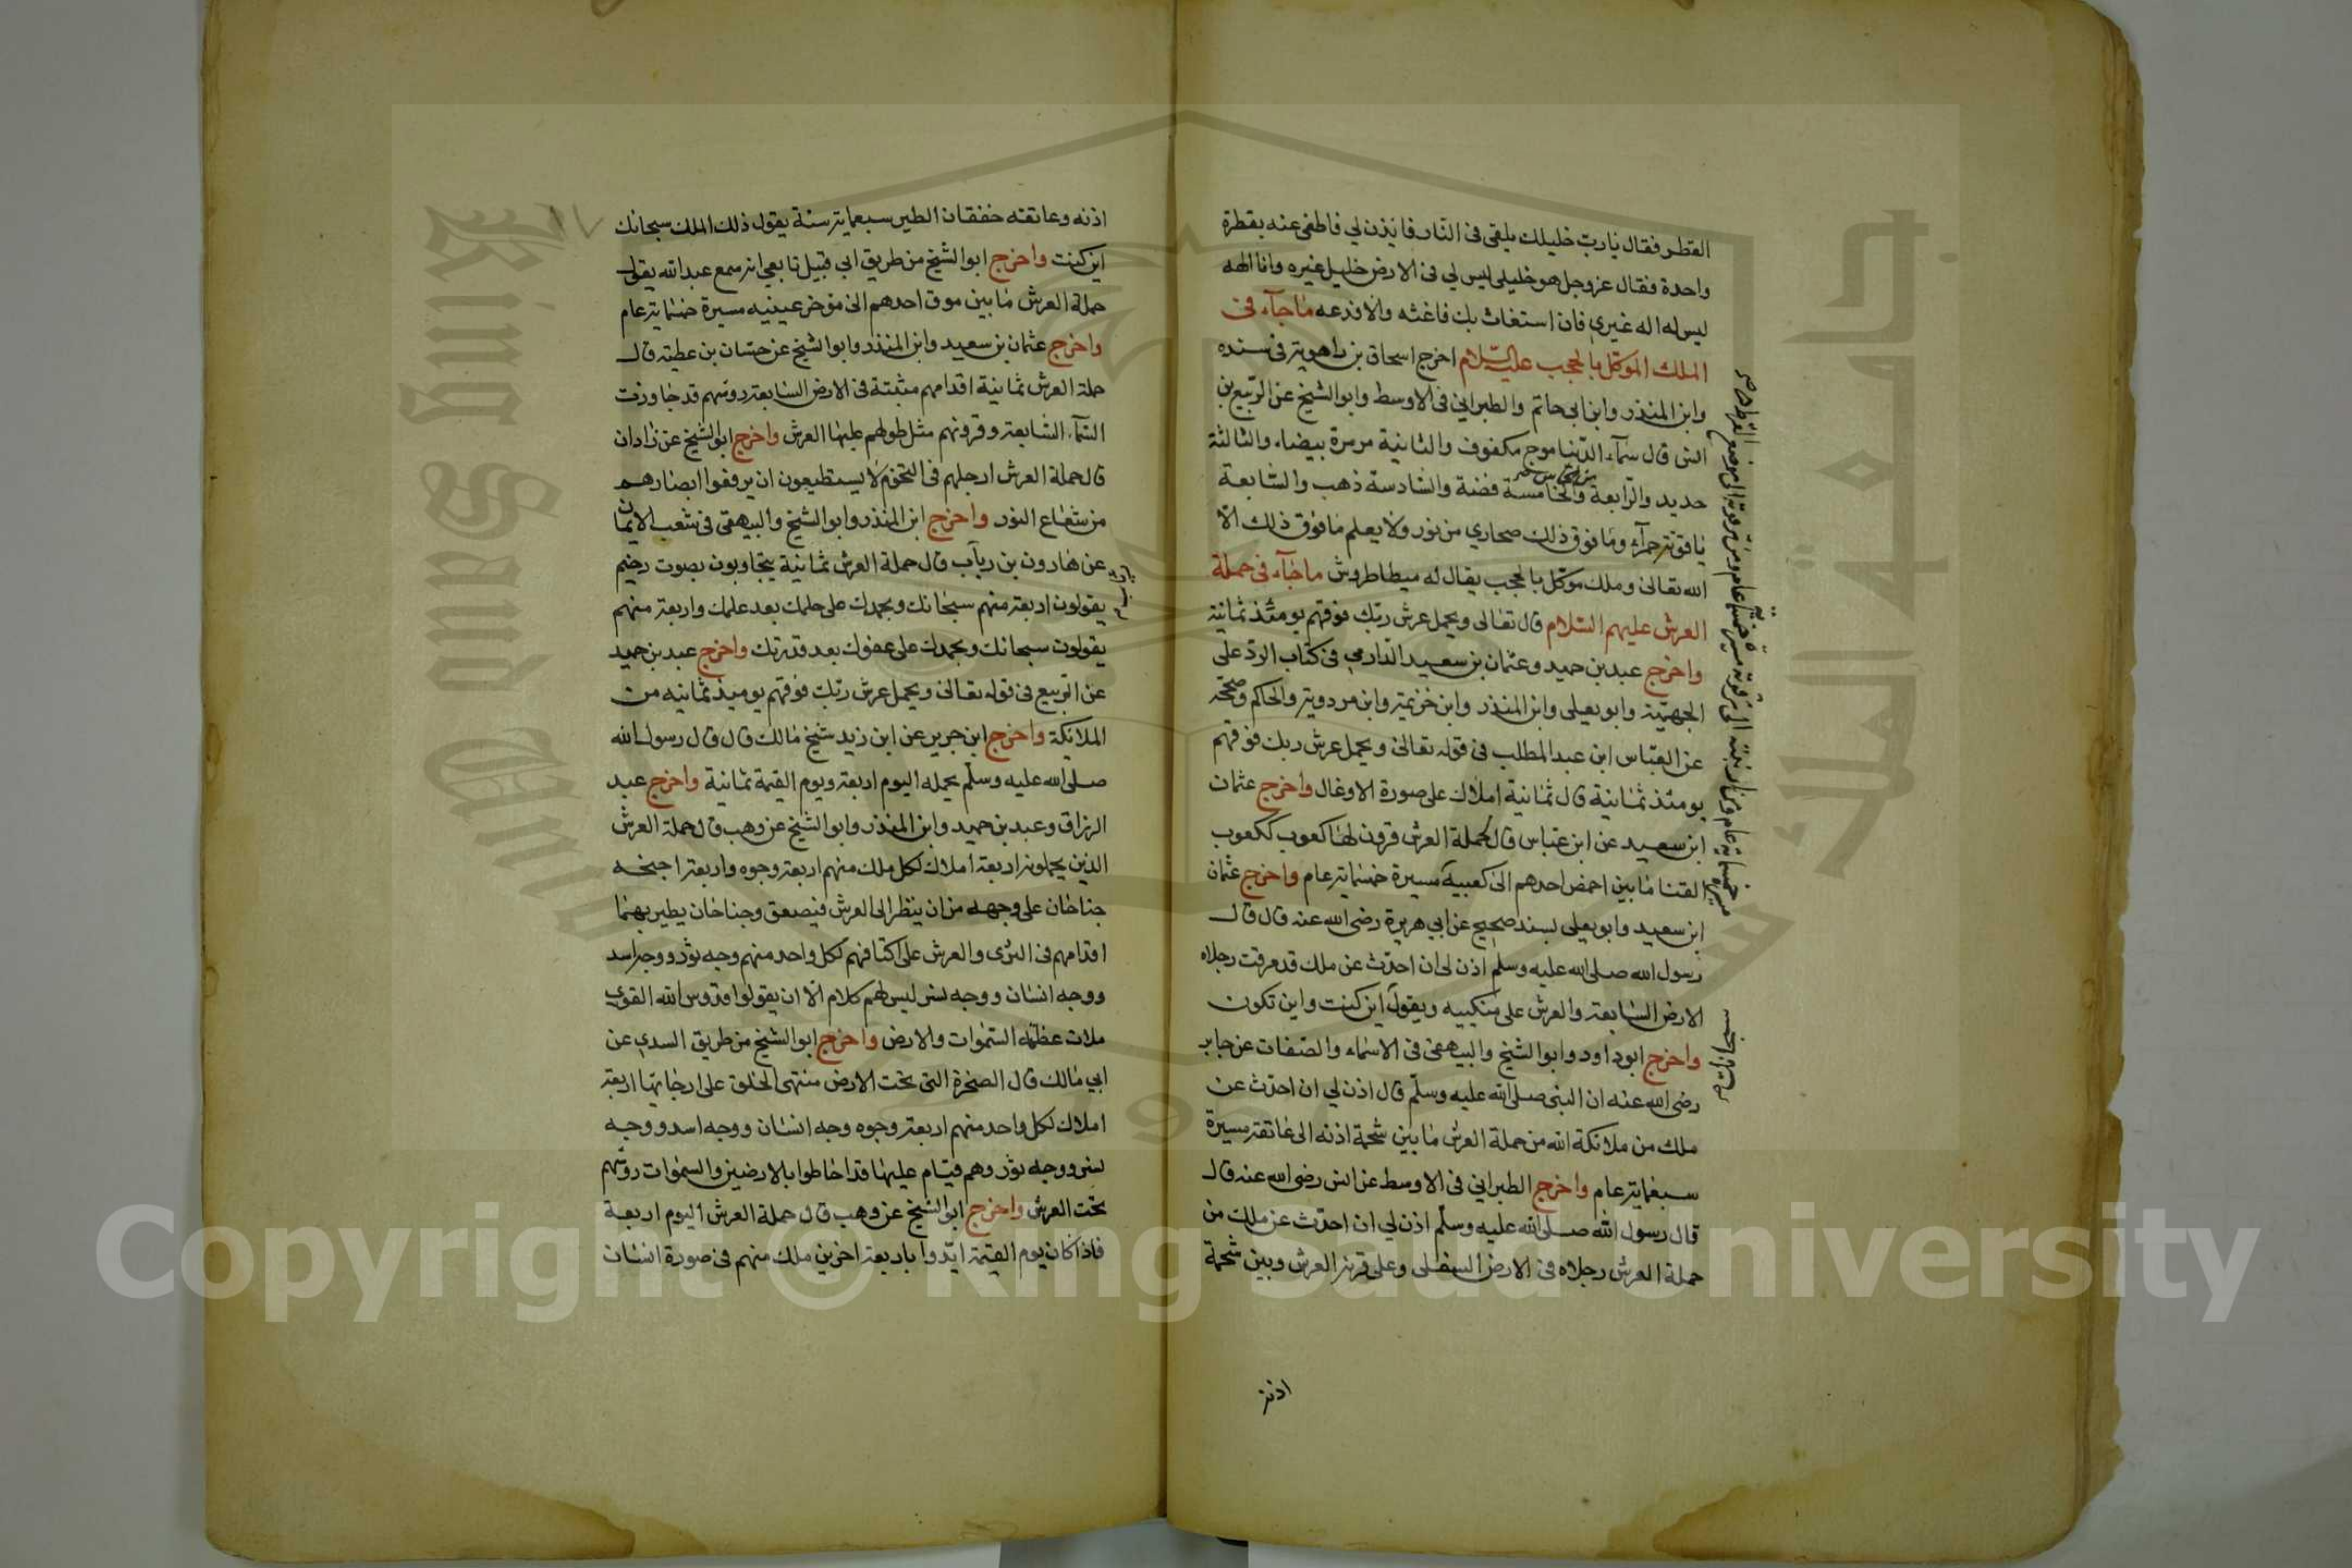 القطر فقال يارب خليلك يلقى فى النار فايذن لي فاطفى عنه بقطرة
واحدة فقال عزوجل هو خليلي ليس لي فى الارض خليل غيره وانا الهه
ليس له اله غيري فان استغاث بك فاغثه والا فدعه ماجآء فى
الملك الموكل بالحجب عليه السلام اخرج اسحاق بن راهويه فى سنده
وابن المنذر وابن ابى حاتم والطبراني فى الاوسط وابو الشيخ عن الربيع بن
انس قال سمآء الدنيا موج مكفوف والثانية مرمرة بيضاء والثالثة
حديد والرابعة من نحاس والخامسة فضة والسادسة ذهب والسابعة
ياقوتة حمرآء وما فوق ذلك صحاري من نور ولا يعلم ما فوق ذلك الا
الله تعالى وملك موكل بالحجب يقال له ميطاطروش ماجآء فى حملة
العرش عليهم السلام قال تعالى ويحمل عرش ربك فوقهم يومئذ ثمانية
واخرج عبد بن حميد وعثمان بن سعيد الدارمي فى كتاب الرد على
الجهمية وابو يعلى وابن المنذر وابن خزيمة وابن مردويه والحاكم وصححه
عن العباس ابن عبد المطلب فى قوله تعالى ويحمل عرش ربك فوقهم
يومئذ ثمانية قال ثمانية املاك على صورة الاوعال واخرج عثمان
ابن سعيد عن ابن عباس قال لحملة العرش قرون لها كعوب ككعوب
القنا مابين اخمص احدهم الى كعبيه مسيرة خمسمايه عام واخرج عثمان
ابن سعيد وابو يعلى بسند صحيح عن ابي هريرة رضى الله عنه قال قال
رسول الله صلى الله عليه وسلم اذن لى ان احدث عن ملك قد مرقت رجلاه
الارض السابعة والعرش على منكبيه ويقول اين كنت واين تكون
واخرج ابو داود وابو الشيخ والبيهقى فى الاسماء والصفات عن جابر
رضى الله عنه ان النبى صلى الله عليه وسلم قال اذن لي ان احدث عن
ملك من ملائكة الله من حملة العرش مابين شحمة اذنه الى عاتقه مسيرة
سبعمايه عام واخرج الطبراني فى الاوسط عن انس رضى الله عنه قال
قال رسول الله صلى الله عليه وسلم اذن لي ان احدث عن ملك من
حملة العرش رجلاه فى الارض السفلى وعلى قرنه العرش وبين شحمة
اذنه
١٧
اذنه وعاتقه خفقان الطير سبعمايه سنة يقول ذلك الملك سبحانك
اين كنت واخرج ابو الشيخ من طريق ابي قبيل تابعي انه سمع عبد الله يقول
حملة العرش مابين موق احدهم الى مؤخر عينيه مسيرة خمسمايه عام
واخرج عثمان بن سعيد وابن المنذر وابو الشيخ عن حسان بن عطيه قال
حملة العرش ثمانية اقدامهم مثبتة فى الارض السابعة روسهم قد جاوزت
السمآء السابعة وقرونهم مثل طولهم عليها العرش واخرج ابو الشيخ عن زادان
قال حملة العرش ارجلهم فى التخوم لا يستطيعون ان يرفعوا ابصارهم
من شعاع النور واخرج ابن المنذر وابو الشيخ والبيهقى فى شعب الايمان
عن هارون بن رياب قال حملة العرش ثمانية يتجاوبون بصوت رخيم
يقولون اربعة منهم سبحانك وبحمدك على حلمك بعد علمك واربعة منهم
يقولون سبحانك وبحمدك على عفوك بعد قدرتك واخرج عبد بن حميد
عن الربيع فى قوله تعالى ويحمل عرش ربك فوقهم يوميذ ثمانيه من
الملائكة واخرج ابن جرير عن ابن زيد شيخ مالك قال قال رسول الله
صلى الله عليه وسلم يحمله اليوم اربعة ويوم القيمة ثمانية واخرج عبد
الرزاق وعبد بن حميد وابن المنذر وابو الشيخ عن وهب قال حملة العرش
الذين يحملونه اربعة املاك لكل ملك منهم اربعة وجوه واربعة اجنحه
جناحان على وجهه من ان ينظر الى العرش فيصعق وجناحان يطير بهما
اقدامهم فى الثرى والعرش على اكتافهم لكل واحد منهم وجه ثور ووجه اسد
ووجه انسان ووجه نسر ليس لهم كلام الا ان يقولوا قدوس الله القوي
ملات عظمته السموات والارض واخرج ابو الشيخ من طريق السدي عن
ابي مالك قال الصخرة التى تحت الارض منتهى الخلق على ارجايها اربعة
املاك لكل واحد منهم اربعة وجوه وجه انسان ووجه اسد ووجه
نسر ووجه ثور وهم قيام عليها قد احاطوا بالارضين والسموات روسهم
تحت العرش واخرج ابو الشيخ عن وهب قال حملة العرش اليوم اربعة
فاذا كان يوم القيمة ايدوا باربعة اخرين ملك منهم فى صورة انسان
Copyright © King Saud University
King Saud University
جامعة الملك سعود